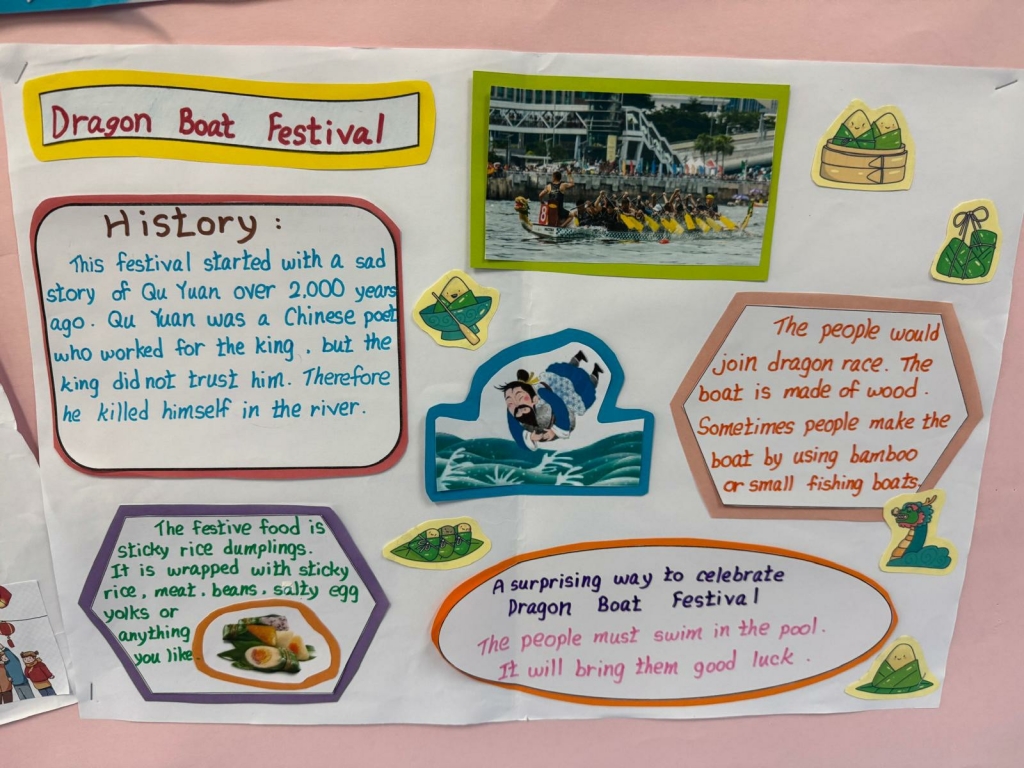 Dragon Boat Festival
History :
This festival started with a sad
story of Qu Yuan over 2,000 years
ago. Qu Yuan was a Chinese poet
who worked for the king, but the
king did not trust him. Therefore
he killed himself in the river.
8
The people would
join dragon race. The
boat is made of wood.
Sometimes people make the
boat by using bamboo
or small fishing boats.
The festive food is
sticky rice dumplings.
It is wrapped with sticky
rice, meat, beans, salty egg
yolks or
anything
you like
A surprising way to celebrate
Dragon Boat Festival
The people must swim in the pool.
It will bring them good luck.